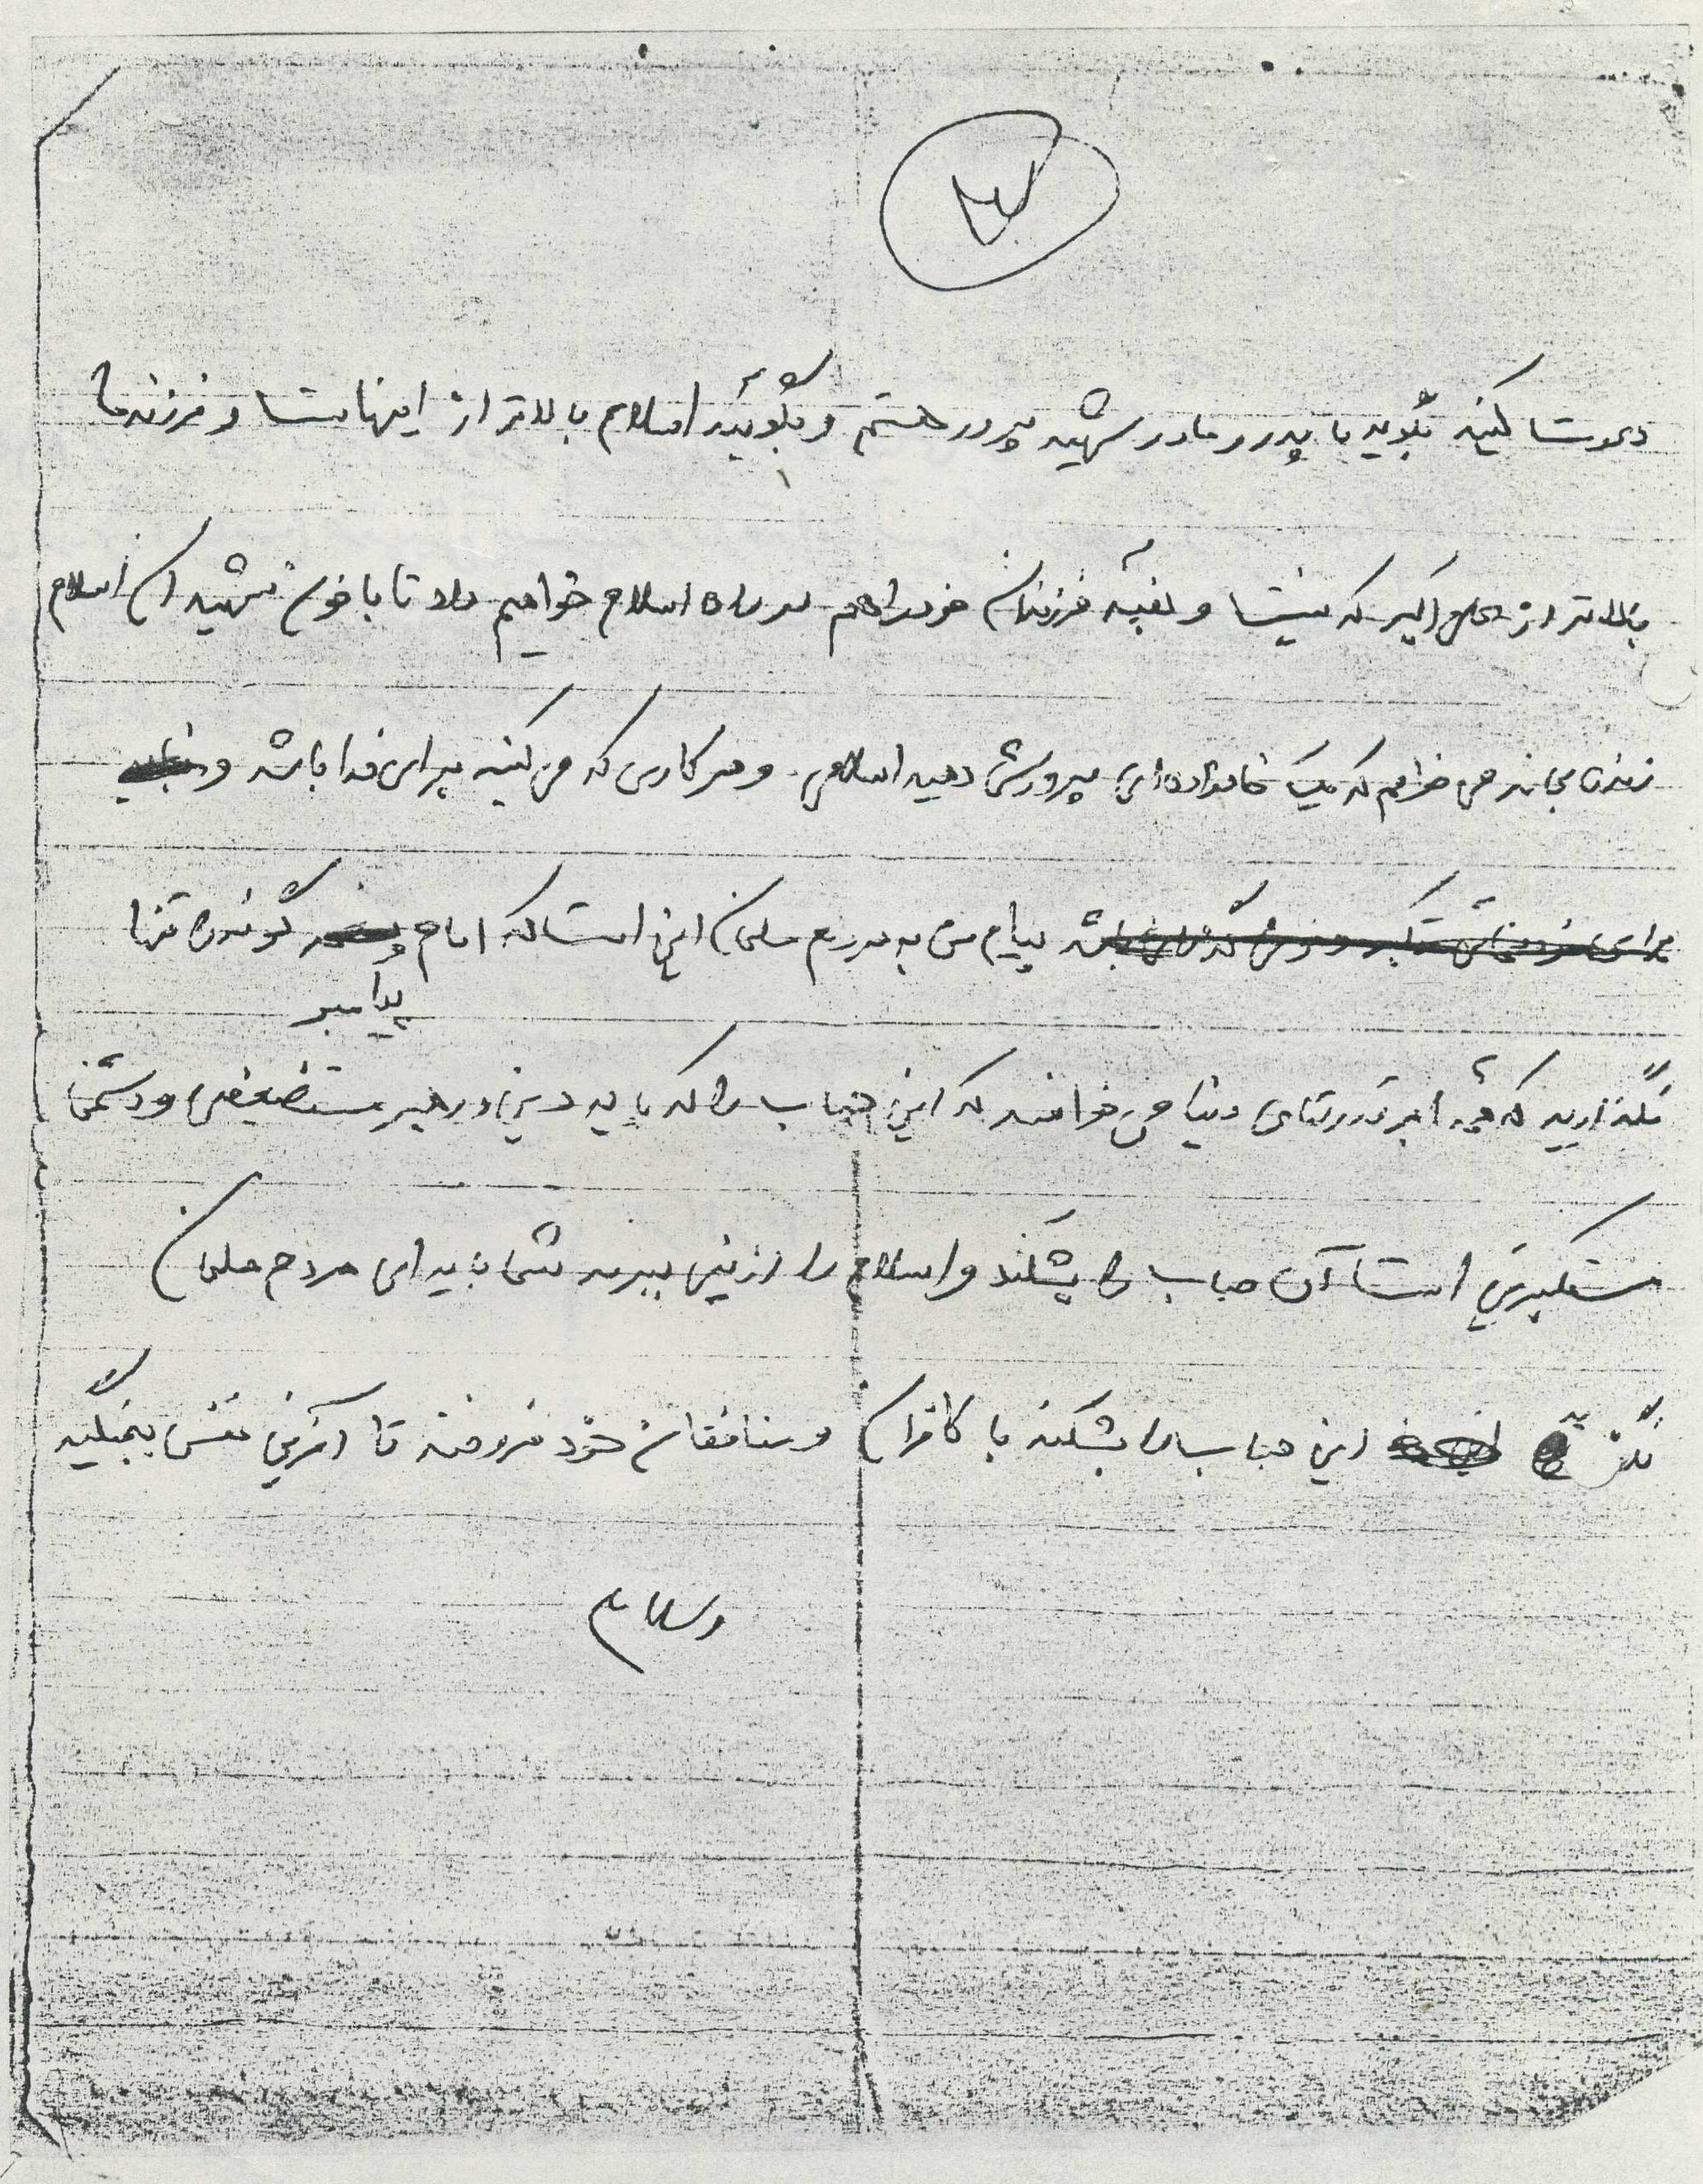 ۳
کنید بگوید با پدر و مادر شهید پرور هستم و بگوئید اسلام بالاتر از اینهاست و فرزند ما
بالاتر از علی اکبر که نیست و بقیه فرزندان خود را هم در راه اسلام خواهیم داد تا با خون شهیدان اسلام
زنده بماند می خواهم که یک خانواده ای پرورش دهید اسلامی. و هر کاری که می کنید برای خدا باشد و نباید
برای باشد پیام من به مردم این است که امام گونه را تنها
پیامبر
نگذارید که ابر قدرتهای دنیا می خواهند که این حباب را که پایه دین و رهبر مستضعفین و دشمن
مستکبرین است آن حباب را بشکنند و اسلام را از بین ببرند شما باید ای مردم
این حباب را بشکند با کافران و منافقان خود فروخته تا آخرین نفس بجنگید
وسلام